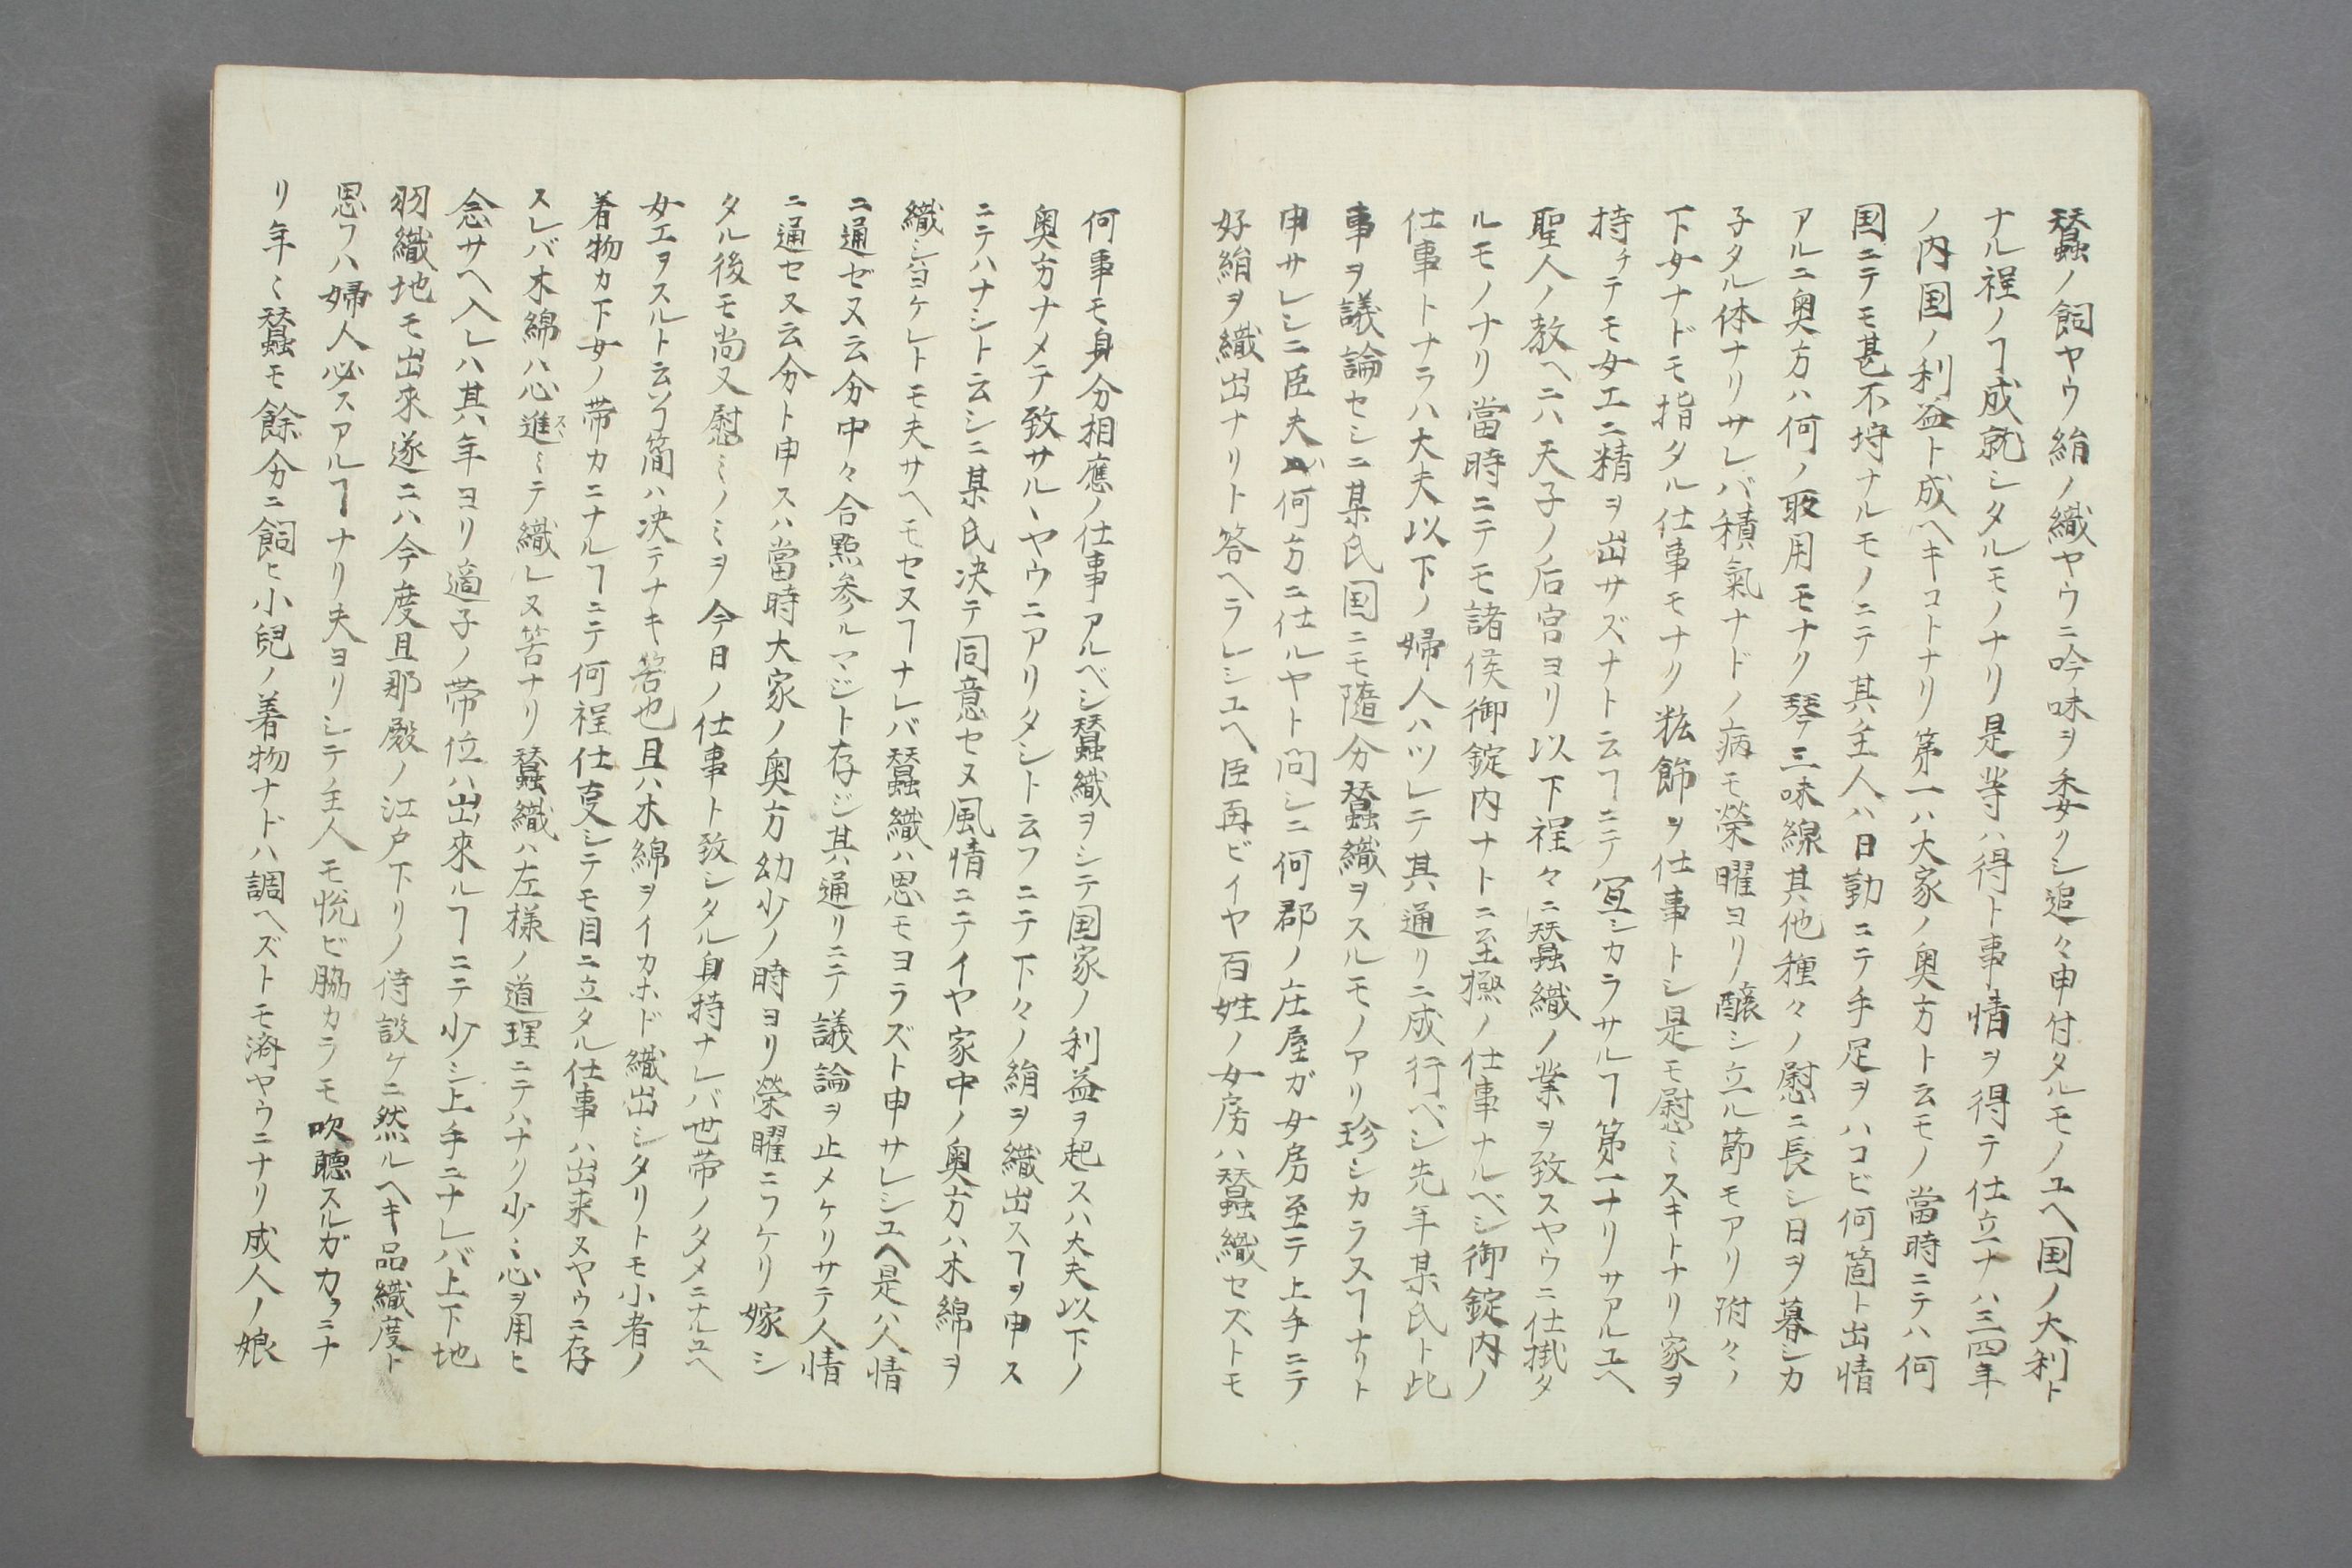 蠶ノ飼ヤウ絹ノ織ヤウニ吟味ヲ委クシ追々申付タルモノユヘ国ノ大利ト
ナル程ノヿ成就シタルモノナリ是等ハ得ト事情ヲ得テ仕立ナハ三四年
ノ内国ノ利益ト成ヘキコトナリ第一ハ大家ノ奥方ト云モノ當時ニテハ何
国ニテモ甚不埒ナルモノニテ其主人ハ日勤ニテ手足ヲハコビ何箇ト出情
アルニ奥方ハ何ノ取用モナク琴三味線其他種々ノ慰ニ長シ日ヲ暮シカ
子タル体ナリサレバ積氣ナドノ病モ榮曜ヨリノ醸シ立ル節モアリ附々ノ
下女ナドモ指タル仕事モナク粧飾ヲ仕事トシ是モ慰ミスキトナリ家ヲ
持チテモ女工ニ精ヲ出サズナト云ヿニテ冝シカラサルヿ第一ナリサアルユヘ
聖人ノ教ヘニハ天子ノ后宮ヨリ以下程々ニ蠶織ノ業ヲ致スヤウニ仕掛タ
ルモノナリ當時ニテモ諸侯御錠内ナトニ至極ノ仕事ナルベシ御錠内ノ
仕事トナラハ大夫以下ノ婦人ハツレテ其通リニ成行ベシ先年某氏ト此
事ヲ議論セシニ某氏国ニモ隨分蠶織ヲスルモノアリ珍シカラスヿナリト
申サレシニ臣夫ハ何方ニ仕ルヤト問シニ何郡ノ庄屋ガ女房至テ上手ニテ
好絹ヲ織出ナリト答ヘラレシユヘ臣再ビイヤ百姓ノ女房ハ蠶織セズトモ
何事モ身分相應ノ仕事アルベシ蠶織ヲシテ国家ノ利益ヲ起スハ大夫以下ノ
奥方ナメテ致サルヽヤウニアリタシト云フニテ下々ノ絹ヲ織出スヿヲ申ス
ニテハナシト云シニ某氏决テ同意セヌ風情ニテイヤ家中ノ奥方ハ木綿ヲ
織シヨケレトモ夫サヘモセヌヿナレバ蠶織ハ思モヨラズト申サレシユヘ是ハ人情
ニ通ゼヌ云分中々合點参ルマジト存ジ其ハ通リニテ議論ヲ止メケリサテ人情
ニ通セヌ云分ト申スハ當時大家ノ奥方幼少ノ時ヨリ榮曜ニフケリ嫁シ
タル後モ尚又慰ミノミヲ今日ノ仕事ト致シタル身持ナレバ世帯ノタメニナルユヘ
女工ヲスルト云フ簡ハ决テナキ筈也且ハ木綿ヲイカホド織出シタリトモ小者ノ
着物カ下女ノ帯カニナルヿニテ何程仕叓シテモ目ニ立タル仕事ハ出来ヌヤウニ存
スレバ木綿ハ心進ミテ織レヌ筈ナリ蠶織ハ左様ノ道理ニテハナク少ミ心ヲ用ヒ
念サヘ入レハ其ハ年ヨリ適子ノ帯位ハ出來ルヿニテ少シ上手ニナレバ上下地
羽織地モ出來遂ニハ今度旦那殿ノ江戸下リノ待設ケニ然ルヘキ品織度ト
思フハ婦人必スアルヿナリ夫ヨリシテノ主人モ悦ビ脇カラモ吹聴スルガカラニナ
リ年ミ蠶モ餘分ニ飼ヒ小兒ノ着物ナドハ調ヘズトモ済ヤウニナリ成人ノ娘